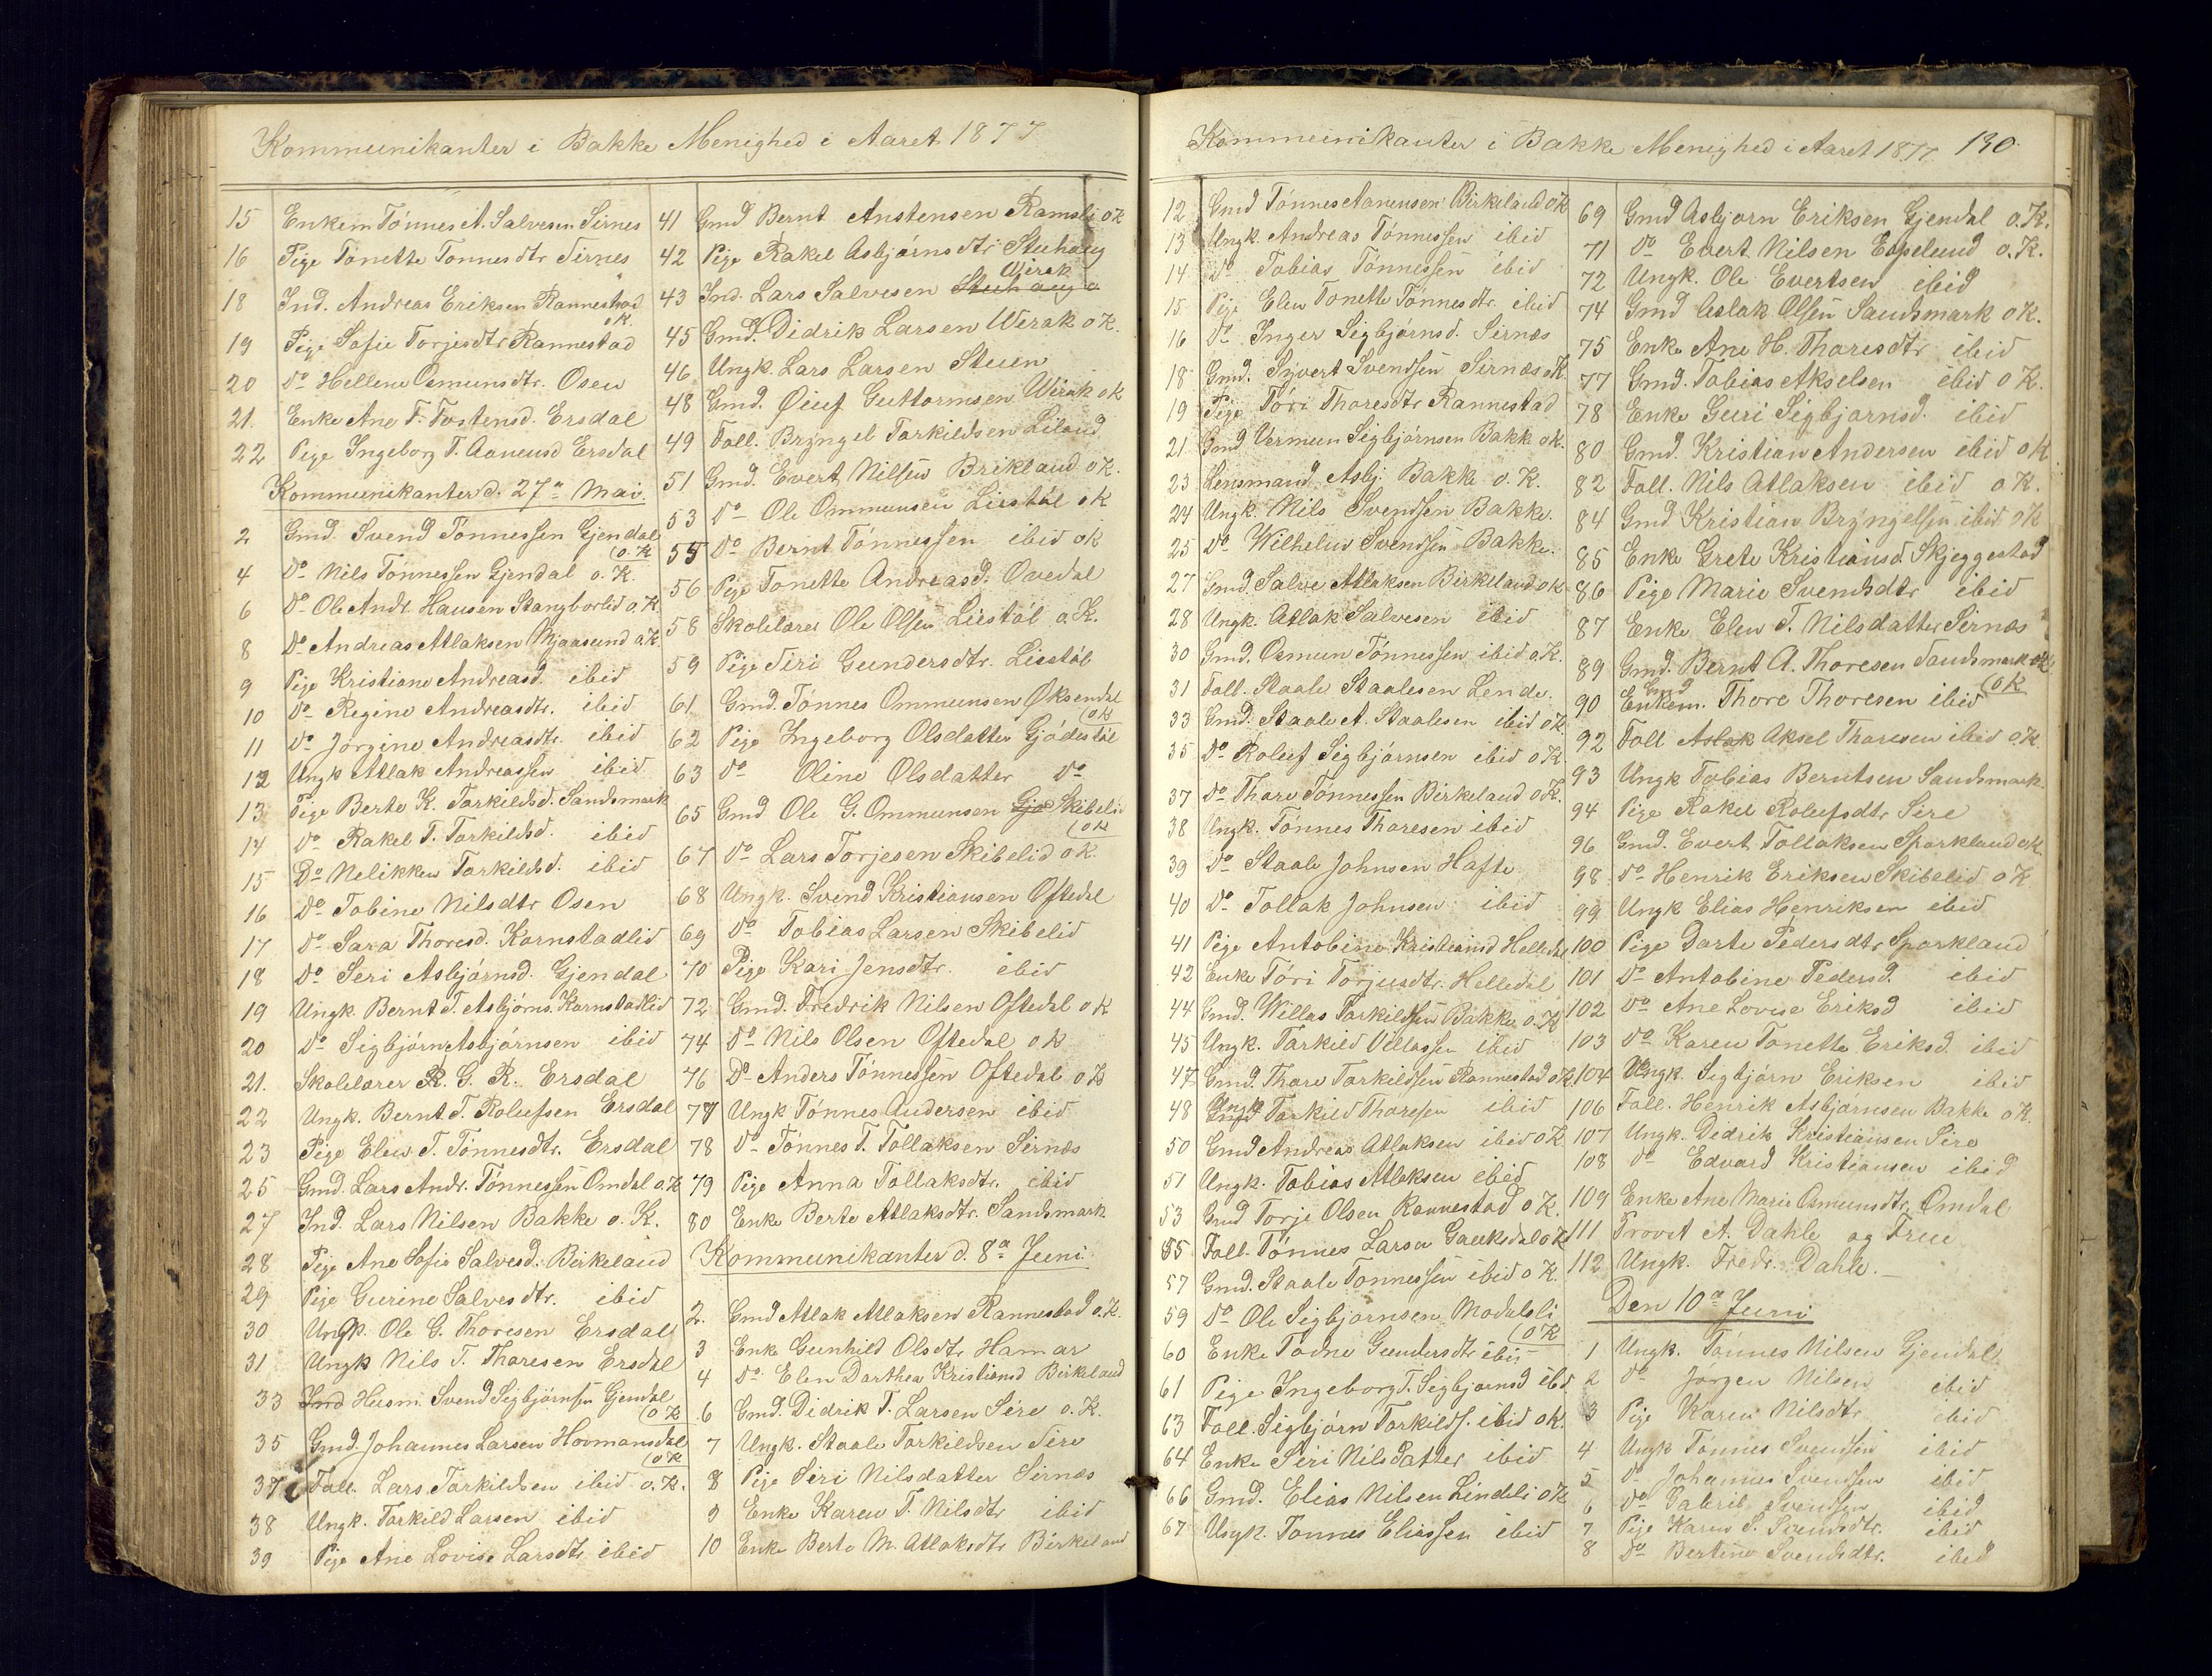 Kommunikanter i Bakke Menighed i Aaret 1877
15 Enkem Tönnes A. Salvesen Sirnes
16 Pige Tonette Tönnesdtr Sirnes
18 Ind. Andreas Eriksen Rannestad
o K.
19 Pige Sofie Torjesdtr Rannestad
20 Do Hellene Osmunsdtr. Osen
21. Enke Ane T. Tostensd. Ersdal
22 Pige Ingeborg T. Aanensd Ersdal
Kommunikanter d. 27de Mai.
2 Gmd. Svend Tönnessen Gjendal
(o. K
4 Do Nils Tönnessen Gjendal o. K.
6 Do Ole Andr. Hansen Stangborlid o. K.
8 Do Andreas Atlaksen Mjaasund o K.
9 Pige Kristiane Andreasd. ibid
10 Do Regine Andreasdtr. ibid
11 Do Jörgine Andreasdtr. ibid
12 Ungk Atlak Andreassen ibid
13 Pige Berte K. Tarkildsd. Sandsmark
14 Do Rakel T. Tarkildsd. ibid
15 Do Nelikken Tarkildsd. ibid
16 Do Tobine Nilsdtr Osen
17 Do Sara Thoresd. Kornstadlid
18 Do Seri Asbjörnsd. Gjendal
19 Ungk. Bernt T. Asbjörns. Kornstadlid
20 Do Sigbjörn Asbjörnsen ibid
21. Skolelærer R. G. R. Ersdal
22 Ungk. Bernt T. Roleufsen Ersdal
23 Pige Elen T. Tönnesdtr. Ersdal
25 Gmd. Lars Andr. Tönnessen Omdal o. K
27 Ind. Lars Nilsen Bakke o. K.
28 Pige Ane Sofie Salvesd. Birkeland
29 Pige Gurine Salvesdtr. ibid
30 Ungk. Ole G. Thoresen Ersdal
31 Ungk Nils T. Tharesen Ersdal
33 Ind Husm. Svend Sigbjörnsen Gjendal
(o K
35 Gmd. Johannes Larsen Hovmansdal
(o K
37 Foll. Lars Tarkildsen ibid o. K.
38 Ungk. Tarkild Larsen ibid
39 Pige Ane Lovise Larsdtr ibid
41 Gmd Bernt Anstensen Ramsli o K
42 Pige Rakel Asbjörnsdtr Stuhaug
Wirak
43 Ind. Lars Salvesen Stuhaug
45 Gmd. Didrik Larsen Wirak o K.
46 Ungk. Lars Larsen Stuen
48 Gmd. Öiuf Guttormsen Wirak o K
49 Foll. Bryngel Tarkildsen Liland
51 Gmd. Evert Nilsen Brikland o K.
53 Do Ole Ommunsen Liestöl o K
55 Do Bernt Tönnessen ibid o K
56 Pige Tonette Andreasd. Ovedal
58 Skolelærer Ole Olsen Liestöl o. K.
59 Pige Siri Gundersdtr. Liestöl
61 Gmd. Tönnes Ommunsen Öksendal
(o K
62 Pige Ingeborg Olsdatter Gjödestöl
63 Do Oline Olsdatter Do
65 Gmd Ole G. Ommunsen Gjö Skibelid
(o K
67 Do Lars Torjesen Skibelid o K.
68 Ungk. Svend Kristiansen Oftedal
69 Do Tobias Larsen Skibelid
70 Pige Kari Jensdtr. ibid
72 Gmd. Fredrik Nilsen Oftedal o K
74 Do Nils Olsen Oftedal o K
76 Do Anders Tönnessen Oftedal o K
77 Ungk Tönnes Andersen ibid
78 Do Tönnes T. Tollaksen Sirnæs
79 Pige Anna Tollaksdtr. ibid
80 Enke Berte Atlaksdtr. Sandsmark
Kommunikanter d. 8de Juni
2. Gmd Atlak Atlaksen Rannestad o. K.
3 Enke Gunhild Olsdtr Hamar
4 Do Elen Darthea Kristiansd Birkeland
6 Gmd. Didrik T. Larsen Sire o. K.
7 Ungk. Staale Tarkildsen Sire
8 Pige Siri Nilsdatter Sirnæs
9 Enke Karen T. Nilsdtr ibid
10 Enke Berte M. Atlaksdtr Birkeland
Kommunikanter i Bakke Menighed i Aaret 1877. 130.
12 Gmd Tönnes Aanensen Birkeland o K
13 Ungk. Andreas Tönnessen ibid
14 Do Tobias Tönnessen ibid
15 Pige Elen Tonette Tönnesdtr. ibid
16 Do Inger Sigbjörnsd. Sirnæs
18 Gmd. Syvert Svendsen Sirnæs o K.
19 Pige Töri Tharesdtr Rannestad
21 Gmd Vermun Sigbjörnsen Bakke o K.
23 Lensmand Asbj. Bakke o. K.
24 Ungk. Nils Svendsen Bakke.
25 Do Wilhelm Svendsen Bakke.
27 Gmd. Salve Atlaksen Birkeland o K
28 Ungk. Atlak Salvesen ibid
30 Gmd. Osmun Tönnessen ibid o. K.
31 Foll. Staale Staalesen Lende.
33 Gmd. Staale A. Staalesen ibid o K
35 Do Roleuf Sigbjörnsen ibid o K
37 Do Thore Tönnessen Birkeland o K.
38 Ungk. Tönnes Tharesen ibid
39 Do Staale Johnsen Hafte
40 Do Tollak Johnsen ibid
41 Pige Antobine Kristiansd Helledal
42 Enke Töri Torjusdtr. Helledal
44 Gmd. Willas Tarkildsen Bakke o. K
45 Ungk. Tarkild Villassen ibid
47 Gmd. Thore Tarkildsen Rannestad o K.
48 Ungk Tarkild Tharesen ibid
50 Gmd Andreas Atlaksen ibid o K
51 Ungk. Tobias Atlaksen ibid
53 Gmd Torje Olsen Rannestad o K.
55 Foll. Tönnes Larsen Gauksdal o K
57 Gmd. Staale Tönnessen ibid o K.
59 Do Ole Sigbjörnsen Modalsli
(o K
60 Enke Todne Gundersdtr ibid
61 Pige Ingeborg T. Sigbjörnsd ibid
63 Foll. Sigbjörn Tarkilds. ibid o K.
64 Enke Siri Nilsdatter ibid
66 Gmd. Elias Nilsen Lindeli o K
67 Ungk. Tonnes Eliassen ibid
69 Gmd Asbjörn Eriksen Gjendal o. K.
71 Do Evert Nilsen Espelund o. K.
72 Ungk. Ole Evertsen ibid
74 Gmd Aslak Olsen Sandsmark o K.
75 Enke Ane H. Tharesdtr ibid
77 Gmd. Tobias Akselsen ibid o K.
78 Enke Guri Sigbjörnsd. ibid
80 Gmd. Kristian Andersen ibid o K
82 Foll. Nils Atlaksen ibid o K.
84 Gmd Kristian Bryngelsen ibid o K
85 Enke Grete Kristiansd. Skjeggestad
86 Pige Marie Svendsdtr ibid
87 Enke Elen T. Nilsdatter Sirnæs
89 Gmd. Bernt A. Thoresen Sandsmark o K
Gmd
90 Enkem. Thore Thoresen ibid (o K
92 Foll Aslak Aksel Tharesen ibid o. K
93 Ungk Tobias Berntsen Sandsmark.
94 Pige Rakel Roleufsdtr Sire
96 Gmd. Evert Tollaksen Sparkland o K.
98 Do Henrik Eriksen Skibelid o K
99 Ungk Elias Henriksen ibid
100 Pige Darte Pedersdtr Sparkland
101 Do Antobine Pedersd. ibid
102 Do Ane Lovise Eriksd ibid
103 Do Karen Tonette Eriksd. ibid
104 Ungk. Sigbjörn Eriksen ibid
106 Foll. Henrik Asbjörnsen Bakke o K.
107 Ungk. Dedrik Kristiansen Sire
108 Do Edvard Kristiansen ibid
109 Enke Ane Marie Osmunsdtr. Omdal
111 Provst A. Dahle og Frue
112 Ungk. Fredr. Dahle.
Den 10de Juni
1 Ungk. Tönnes Nilsen Gjendal
2 Do Jörgen Nilsen ibid
3 Pige Karen Nilsdtr ibid
4 Ungk Tönnes Svendsen ibid
5 Do Johannes Svendsen ibid
6 Do Gabriel Svendsen ibid
7 Pige Karen S. Svendsdtr. ibid
8 Do Bertine Svendsdtr. ibid